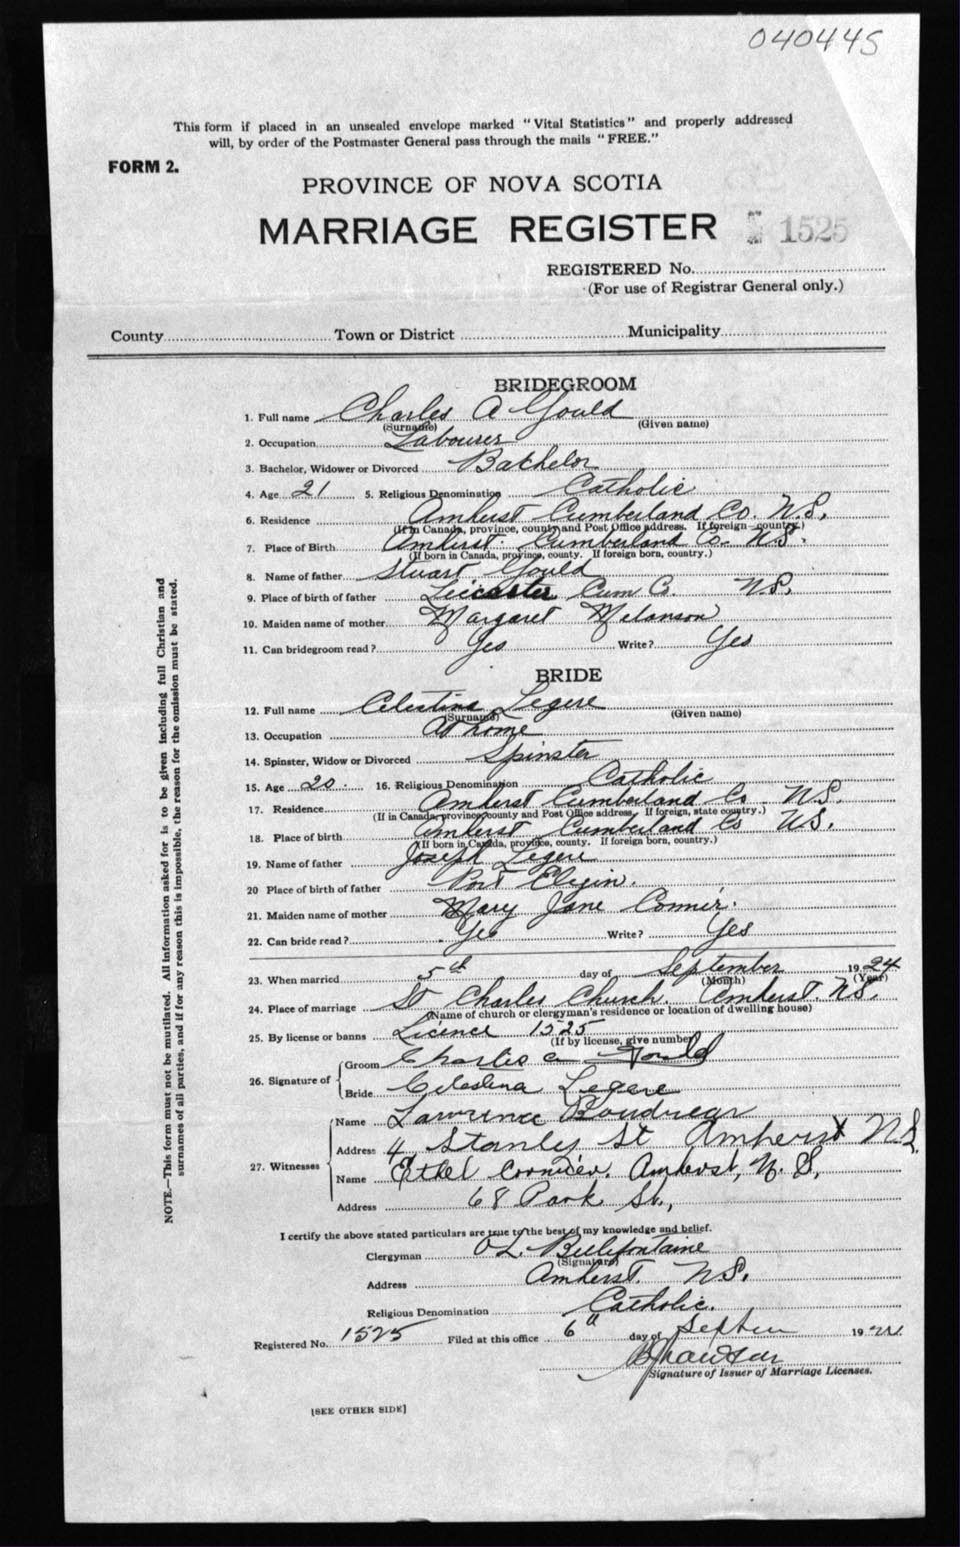 040445
This form if placed in an unsealed envelope marked "Vital Statistics" and properly addressed
will, by order of the Postmaster General pass through the mails "FREE."
FORM 2.
PROVINCE OF NOVA SCOTIA
MARRIAGE REGISTER 1525
REGISTERED No.
(For use of Registrar General only.)
County Town or District Municipality
BRIDEGROOM
1. Full name Charles A Gould
(Surname) (Given name)
2. Occupation Labourer
3. Bachelor, Widower or Divorced Bachelor
4. Age 21 5. Religious Denomination Catholic
6. Residence Amherst Cumberland Co. N.S.
(If in Canada, province, county and Post Office address. If foreign country.)
7. Place of Birth Amherst Cumberland Co. N.S.
(If born in Canada, province, county. If foreign born, country.)
8. Name of father Stuart Gould
9. Place of birth of father Leicester Cum Co. N.S.
10. Maiden name of mother Margaret Melanson
11. Can bridegroom read? Yes Write? Yes
BRIDE
12. Full name Celestina Legere
(Surname) (Given name)
13. Occupation At Home
14. Spinster, Widow or Divorced Spinster
15. Age 20. 16. Religious Denomination Catholic
17. Residence Amherst Cumberland Co. N.S.
(If in Canada, province, county and Post Office address. If foreign, state country.)
18. Place of birth Amherst Cumberland Co N.S.
(If born in Canada, province, county. If foreign born, country.)
19. Name of father Joseph Legere
20 Place of birth of father Port Elgin.
21. Maiden name of mother Mary Jane
22. Can bride read? Yes Write? Yes
23. When married 5th day of September 1924
(Month) (Year)
24. Place of marriage St Charles Church. Amherst. N.S.
(Name of church or clergyman's residence or location of dwelling house)
25. By license or banns Licence 1525
(If by license, give number)
26. Signature of
Groom Charles a Gould
Bride Celestina Legere
27. Witnesses
Name Lawrence
Address 4 Stanley St Amherst N.S.
Name Ethel Cormier. Amherst, N.S.
Address 68 Park St.,
I certify the above stated particulars are true to the best of my knowledge and belief.
Clergyman Bellefontaine
(Signature)
Address Amherst. N.S.
Religious Denomination Catholic.
Registered No. 1525 Filed at this office 6th day of 1924
Signature of Issuer of Marriage Licenses.
[SEE OTHER SIDE]
NOTE.—This form must not be mutilated. All information asked for is to be given including full Christian and
surnames of all parties, and if for any reason this is impossible, the reason for the omission must be stated.